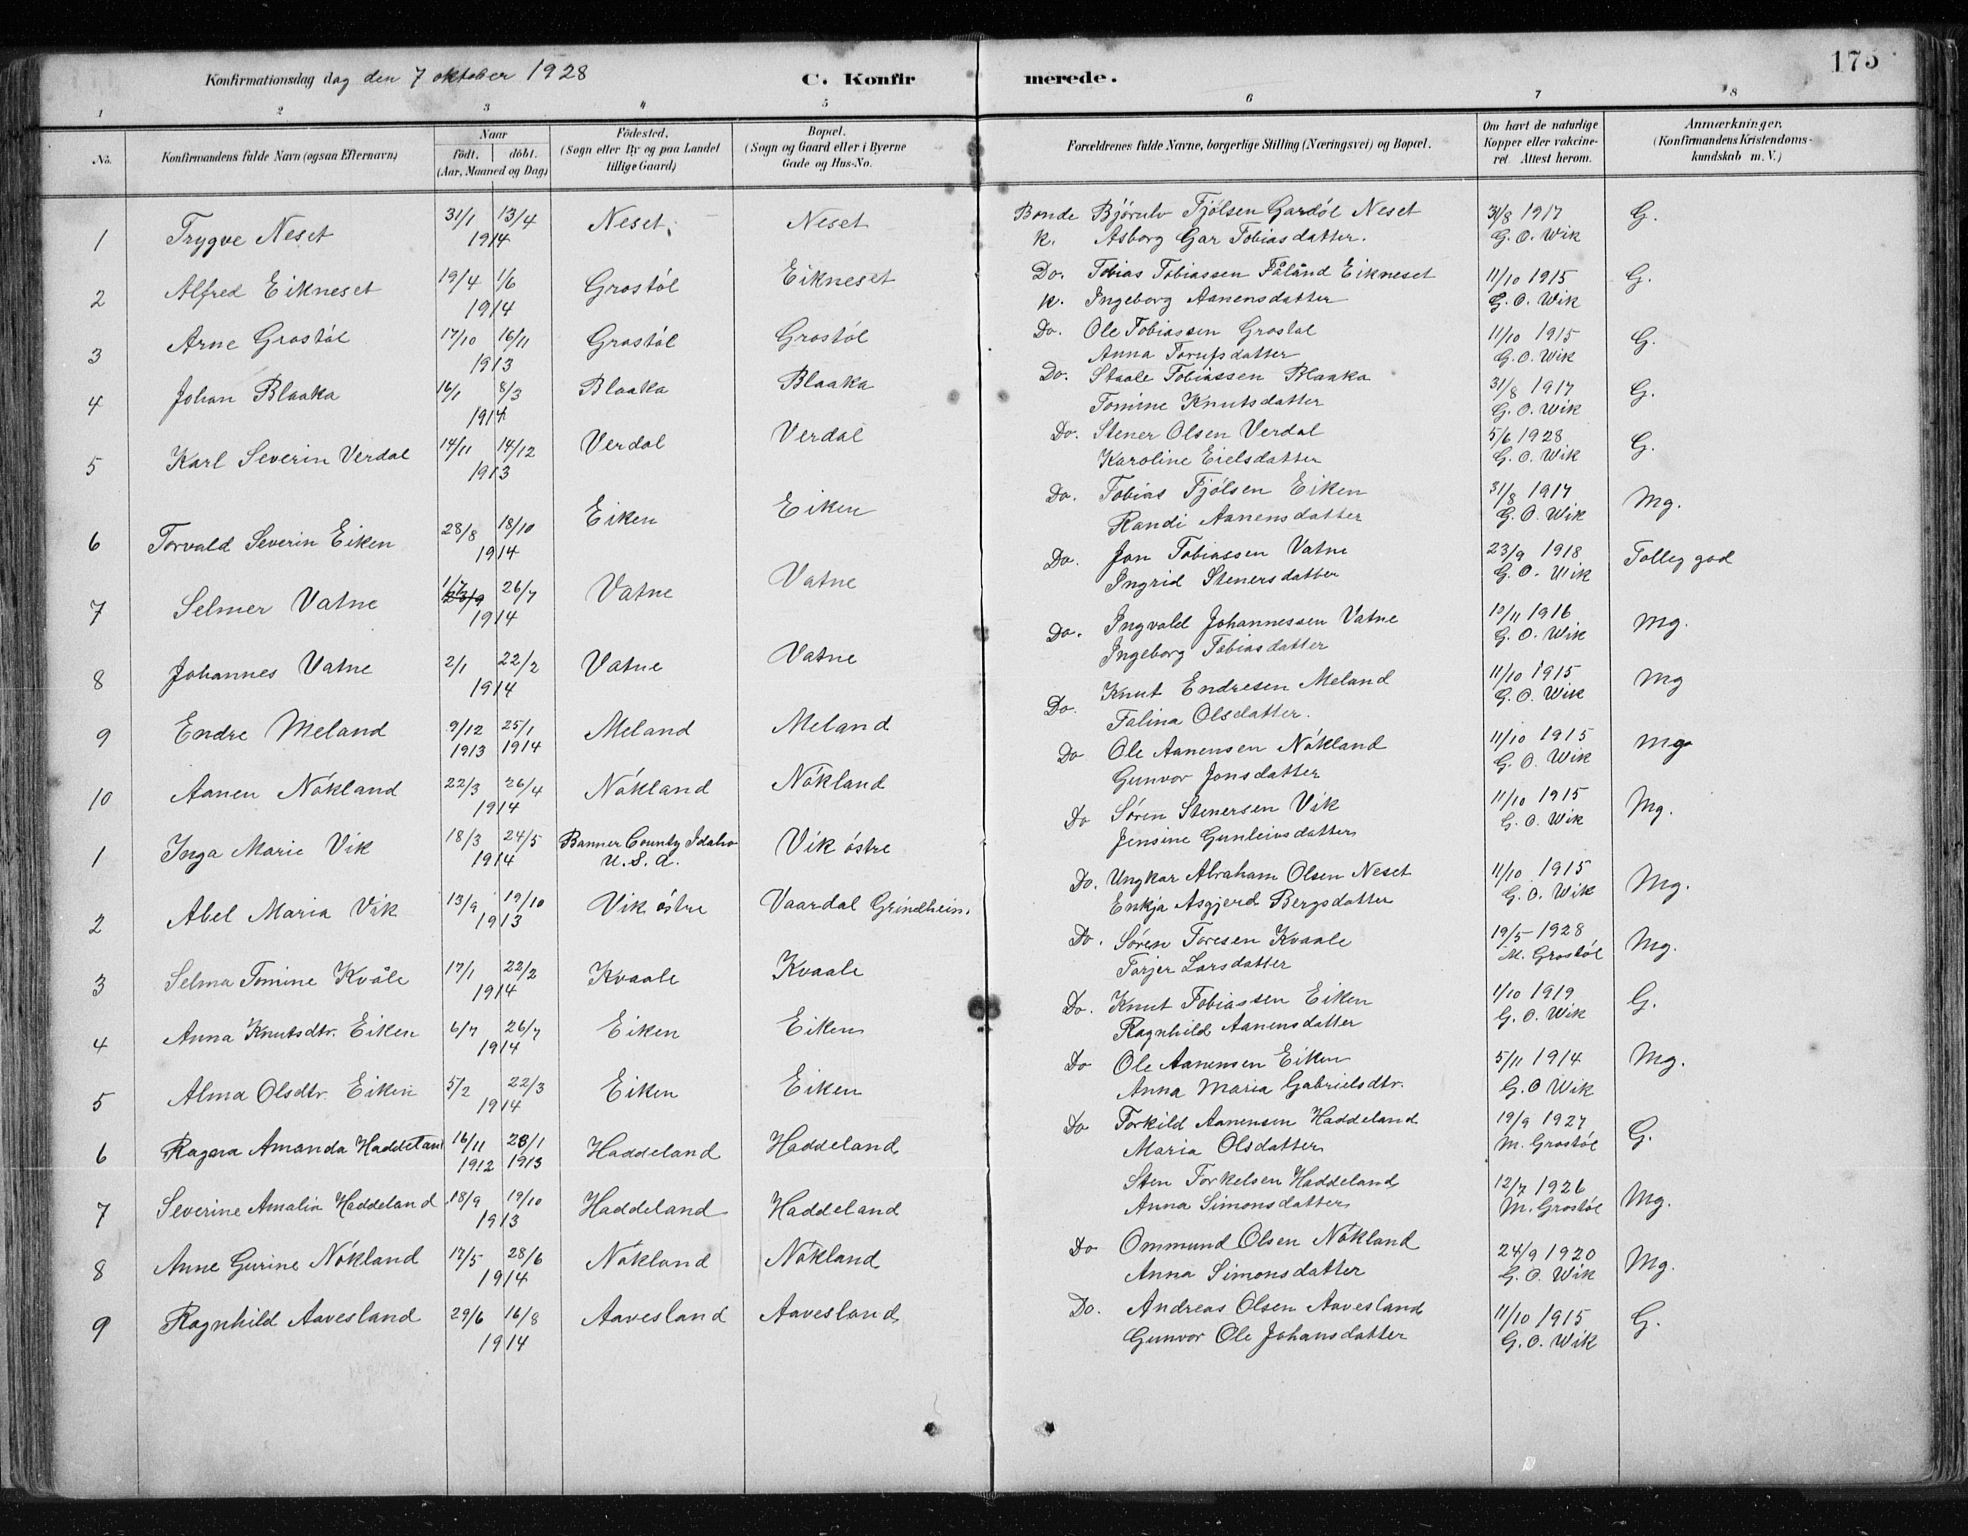 175
Konfirmationsdag dag den 7 oktober 1928
C. Konfirmerede.
1 2 3 4 5 6 7 8
No. Konfirmandens fulde Navn (ogsaa Efternavn) Naar født. døbt. (Aar, Maaned og Dag) Fødested. (Sogn eller By og paa Landet tillige Gaard) Bopæl. (Sogn og Gaard eller i Byerne Gade og Hus-No. Forældrenes fulde Navne, borgerlige Stilling (Næringsvei) og Bopæl. Om havt de naturlige Kopper eller vakcineret. Attest herom. Anmærkninger. (Konfirmandens Kristendomskundskab m. V.)
1 Trygve Neset 31/1 13/4 1914 Neset. Neset Bonde Bjørulv Fjølsen Gardøl Neset 31/8 1917 G.
k. Asborg Gar Tobiasdatter. G. O. Wik
2 Alfred Eikneset 19/4 1/6 1914 Grostøl Eikneset Do. Tobias Tobiassen Eikneset 11/10 1915 G.
k. Ingeborg Aanensdatter G. O. Wik
3 Arne Grostøl 17/10 16/11 1913 Grostøl Grostøl Do. Ole Tobiassen Grostøl 11/10 1915 G.
Anna G. O. Wik
4 Johan Blaaka 16/1 8/3 1914 Blaaka Blaaka Do. Staale Tobiassen Blaaka 31/8 1917 G.
Tomine Knutsdatter G. O. Wik
5 Karl Severin Verdal 14/11 14/12 1913 Verdal Verdal Do. Stener Olsen Verdal 5/6 1928 G.
Karoline Eielsdatter G. O. Wik
6 Torvald Severin Eiken 28/8 18/10 1914 Eiken Eiken Do. Tobias Fjølsen Eiken 31/8 1917 Mg.
Randi Aanensdatter G. O. Wik
7 Selmer Vatne 1/7 26/7 1914 Vatne Vatne Do. Jon Tobiassen Vatne 23/9 1918 god
Ingrid Stenersdatter G. O. Wik
8 Johannes Vatne 2/1 22/2 1914 Vatne Vatne Do. Ingvald Johannessen Vatne 1916 Mg.
Ingeborg Tobiasdatter G. O. Wik
9 Endre Meland 9/12 1913 25/1 1914 Meland Meland Do. Knut Endresen Meland 11/10 1915 Mg
Talina Olsdatter. G. O. Wik
10 Aanen Nøkland 22/3 26/4 1914 Nøkland Nøkland Do Ole Aanensen Nøkland 11/10 1915 Mg
Gunvor Jonsdatter G. O. Wik
1 Inga Marie Vik 18/3 24/5 1914 Banner County Idaho U. S. A. Vik østre Do Søren Stenersen Vik 11/10 1915 Mg.
Jensine Gunleivsdatter G. O. Wik
2 Abel Maria Vik 13/9 19/10 1913 Vik østre Vaardal Grindheim. Do. Ungkar Abraham Olsen Neset 11/10 1915 Mg.
Enkja Asgjerd Bergsdatter G. O. Wik
3 Selma Tomine Kvåle 17/1 22/2 1914 Kvaale Kvaale Do. Søren Toresen Kvaale 19/5 1928 Mg.
Torjer Larsdatter M. Grostøl
4 Anna Knutsdtr. Eiken 6/7 26/7 1914 Eiken Eiken Do. Knut Tobiassen Eiken 1/10 1919 G.
Ragnhild Aanensdatter G. O. Wik
5 Alma Olsdtr. Eiken 5/2 22/3 1914 Eiken Eiken Do Ole Aanensen Eiken 5/11 1914 Mg.
Anna Maria Gabrielsdtr. G. O Wik
6 Ragna Amanda Haddeland 16/11 1912 28/1 1913 Haddeland Haddeland Do Torkild Aanensen Haddeland 19/9 1927 G.
Maria Olsdatter M. Grostøl
7 Severine Amalia Haddeland 18/9 19/10 1913 Haddeland Haddeland Sten Torkelsen Haddeland 12/7 1926 Mg.
Anna Simonsdatter M. Grostøl
8 Anne Gurine Nøkland 17/5 28/6 1914 Nøkland Nøkland Do Ommund Olsen Nøkland 24/9 1920 Mg.
Anna Simonsdatter G. O. Wik
9 Ragnhild Aavesland 29/6 16/8 1914 Aavesland Aavesland Do. Andreas Olsen Aavesland 11/10 1915 G.
Gunvor Ole Johansdatter G. O. Wik